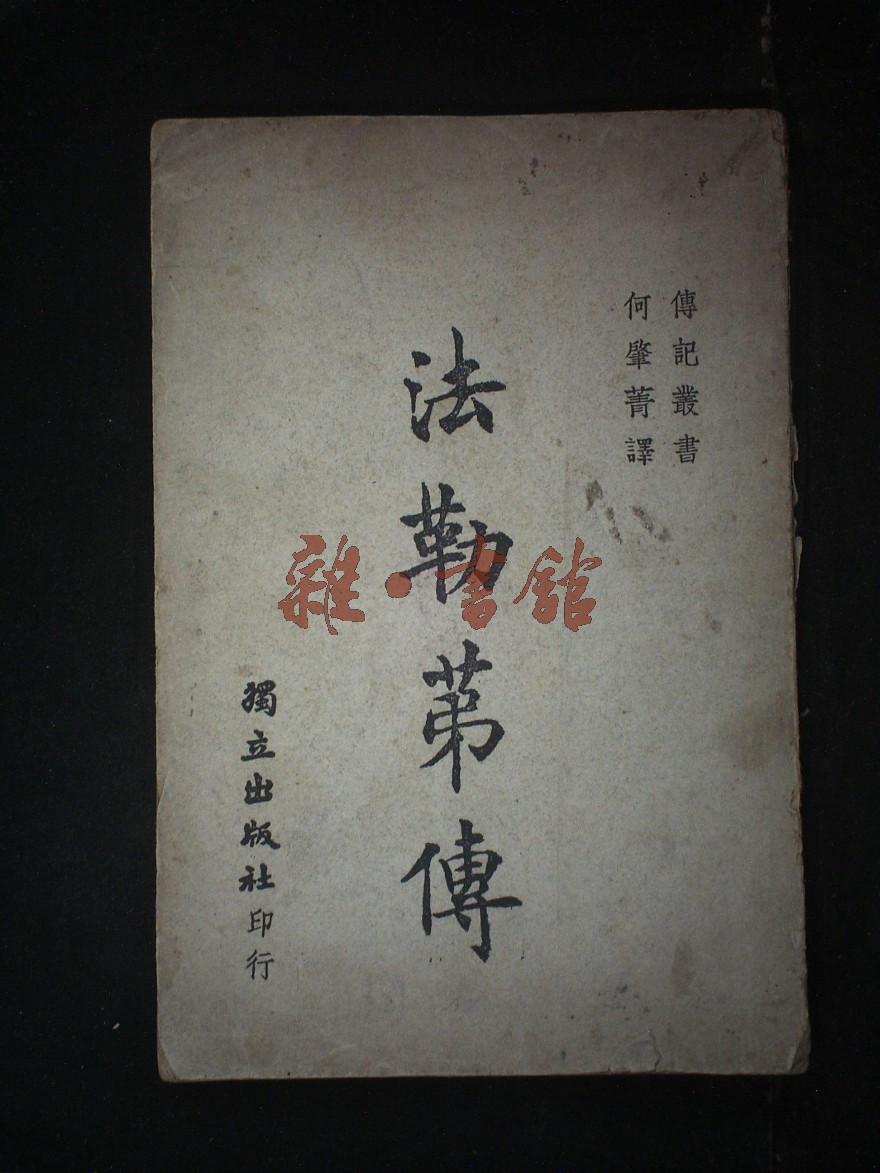 傳記叢書
何肇菁譯
法勒苐傳
獨立出版社印行
雜·書館